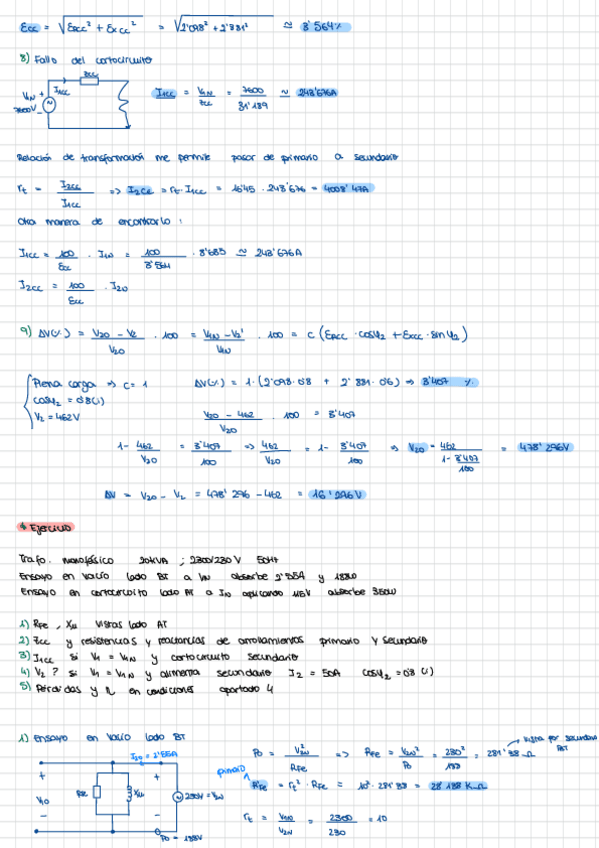 Ecc = √(ERcc² + EXcc²) = √(2'098² + 2'881²) ≃ 3'564%
8) Fallo del cortocircuito
Zcc
I1cc
V1N
7600V
I1cc = V1N / Zcc = 7600 / 31'189 ≃ 243'676A
Relación de transformación me permite pasar de primario a secundario
rt = I2cc / I1cc => I2cc = rt · I1cc = 16'45 · 243'676 = 4008'47A
Otra manera de encontrarlo :
I1cc = 100 / Ecc · I1N = 100 / 3'564 · 8'685 ≃ 243'676A
I2cc = 100 / Ecc · I2N
9) ΔV(%) = (V20 - V2) / V20 · 100 = (V1N - V2') / V1N · 100 = c (ERcc · cosφ2 + EXcc · sinφ2)
Plena carga => c = 1
cosφ2 = 0'8(i)
V2 = 462V
ΔV(%) = 1 · (2'098 · 0'8 + 2'881 · 0'6) => 3'407 %
(V20 - 462) / V20 · 100 = 3'407
1 - 462 / V20 = 3'407 / 100 => 462 / V20 = 1 - 3'407 / 100 => V20 = 462 / (1 - 3'407 / 100) = 478'296V
ΔV = V20 - V2 = 478'296 - 462 = 16'296V
Ejercicio
Trafo. monofásico 20KVA ; 2300/230 V 50Hz
Ensayo en vacío lado BT a VN absorbe 2'55A y
Ensayo en cortocircuito lado AT a IN aplicando 115V absorbe 350W
1) RFe, Xμ vistas lado AT
2) Zcc y resistencias y reactancias de arrollamientos primario y secundario
3) I1cc si V1 = V1N y cortocircuito secundario
4) V2 ? si V1 = V1N y alimenta secundario I2 = 50A cosφ2 = 0'8 (i)
5) Pérdidas y η en condiciones apartado 4
1) Ensayo en vacío lado BT
I20 = 2'55A
RFe
Xμ
V10
230V = V2N
P0 =
P0 = V2N² / RFe => RFe = V2N² / P0 = 230² / = 281'38 Ω
vista por secundario BT
primario
RFe = rt² · RFe = 10² · 281'38 = 28'138 KΩ
rt = V1N / V2N = 2300 / 230 = 10